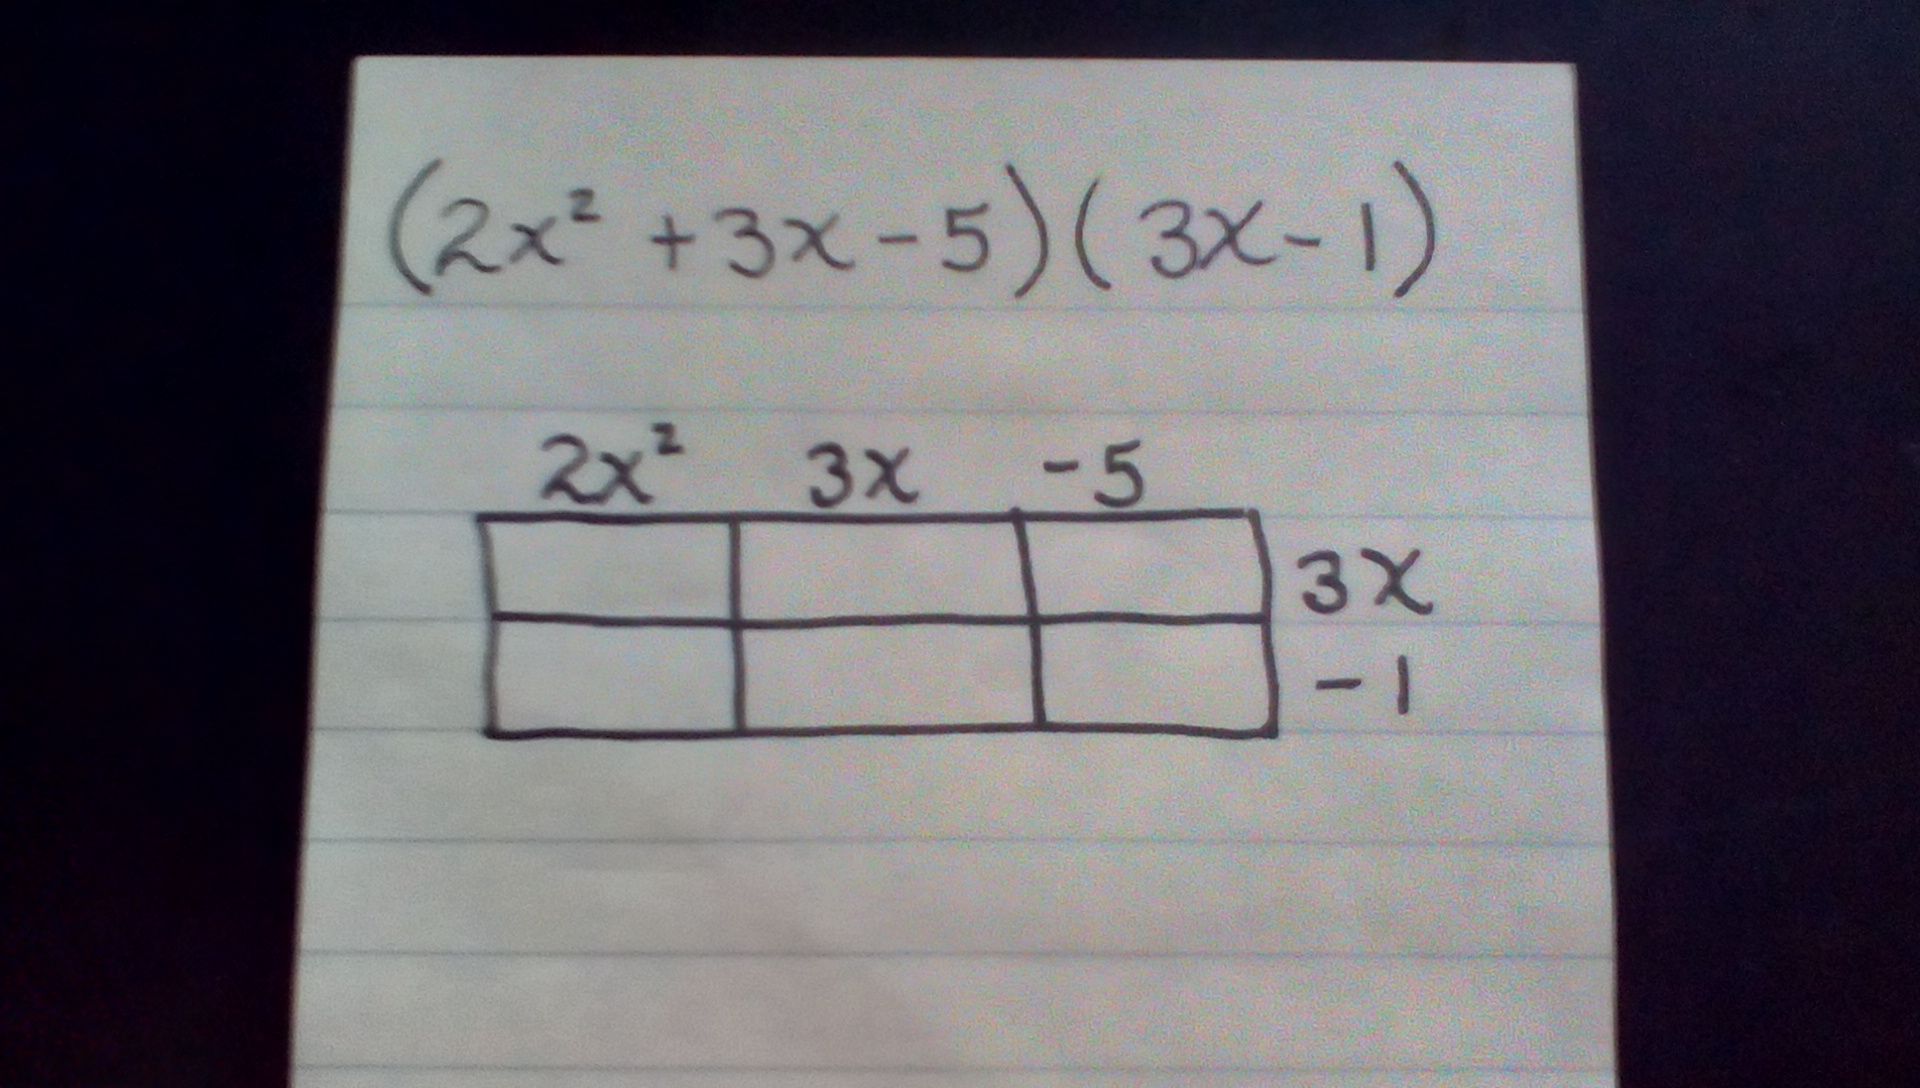 (2x² +3x-5)(3x-1)
2x² 3x -5
3x
-1